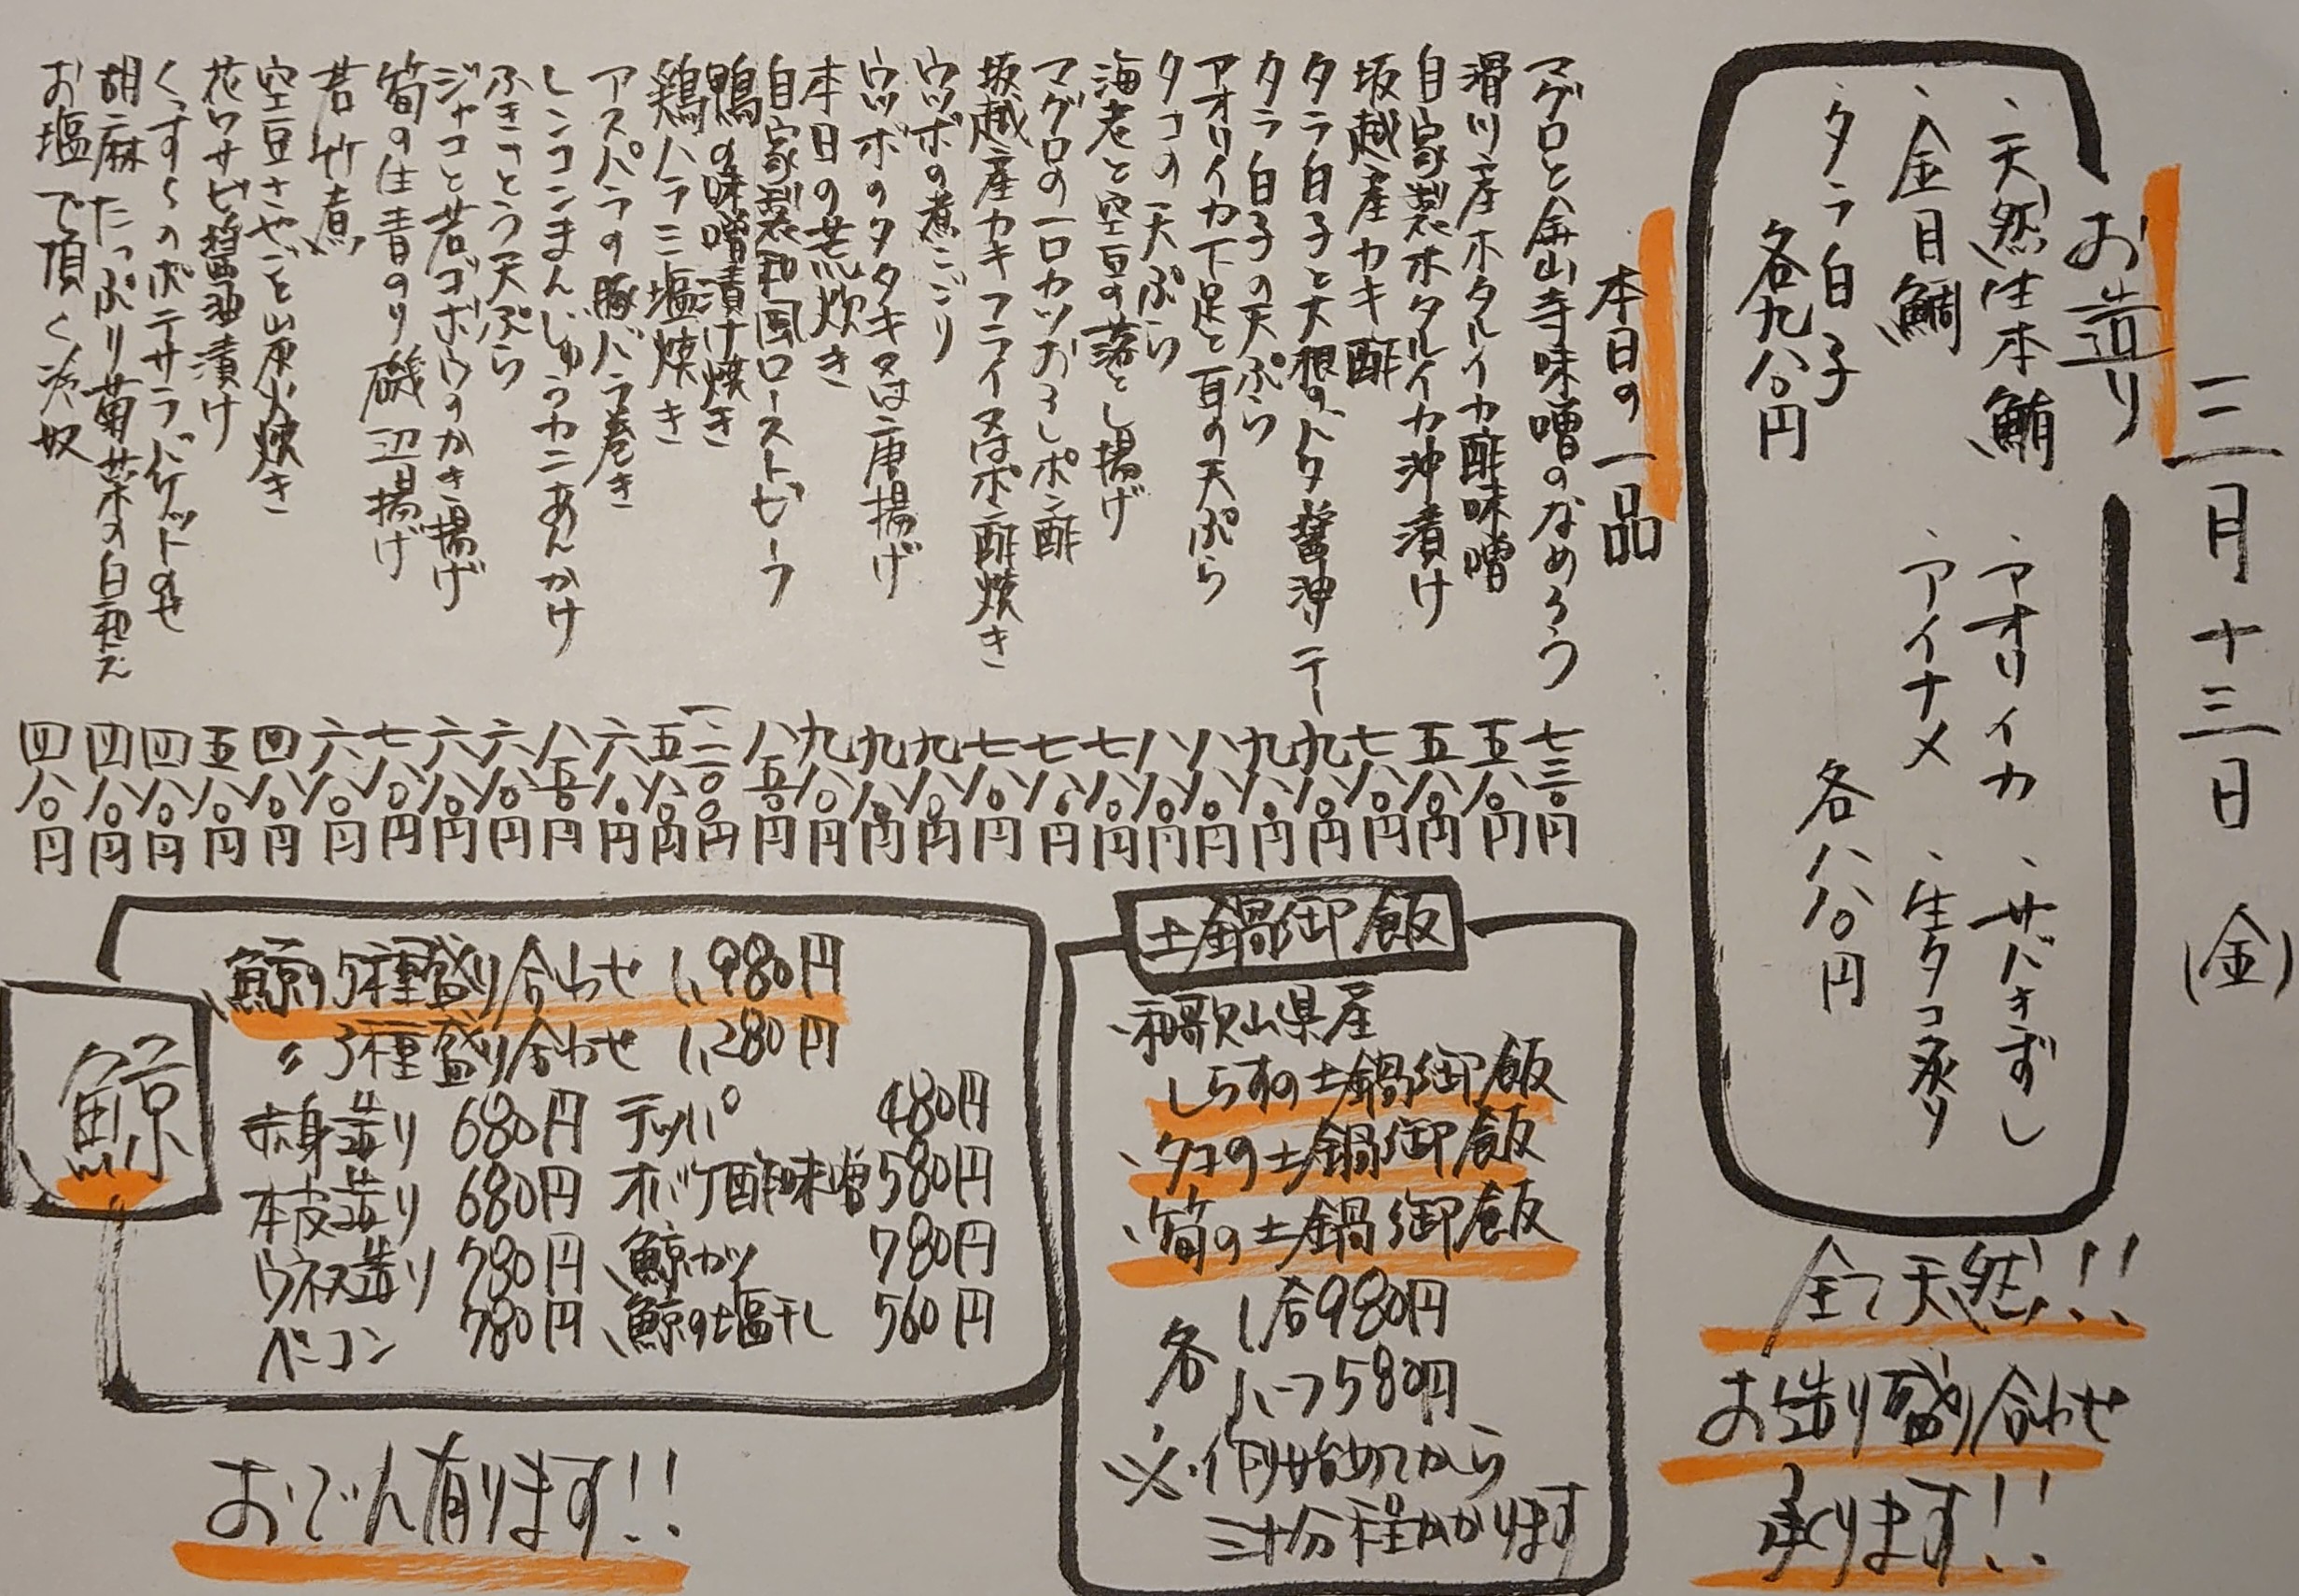 三月十三日(金)
お造り
、天然生本鮪
、金目鯛
、タラ白子
各九八〇円
、アオリイカ
、アイナメ
、サバきずし
、生タコ炙り
各八八〇円
全て天然!!
お造り盛り合わせ
承ります!!
本日の一品
マグロと金山寺味噌のなめろう 七三〇円
滑川産ホタルイカ酢味噌 五八〇円
自家製ホタルイカ沖漬け 五八〇円
坂越産カキ酢 七八〇円
タラ白子と大根のバタ醤油ソテー 九八〇円
タラ白子の天ぷら 九八〇円
アオリイカ下足と耳の天ぷら 八八〇円
タコの天ぷら 八八〇円
海老と空豆の落とし揚げ 七八〇円
マグロの一口カツおろしポン酢 七八〇円
坂越産カキフライ又はポン酢焼き 七八〇円
ウツボの煮こごり 九八〇円
ウツボのタタキ又は唐揚げ 九八〇円
本日の荒炊き 九八〇円
自家製和風ローストビーフ 八五〇円
鴨の味噌漬け焼き 一、二〇〇円
鶏ハラミ塩焼き 五八〇円
アスパラの豚バラ巻き 六八〇円
レンコンまんじゅうカニあんかけ 八五〇円
ふきのとう天ぷら 六八〇円
ジャコと若ゴボウのかき揚げ 六八〇円
筍の生青のり磯辺揚げ 七八〇円
若竹煮 六八〇円
空豆さやごと炭火焼き 四八〇円
花ワサビ醤油漬け 五八〇円
くずし〜のポテサラバゲットのせ 四八〇円
胡麻たっぷり菊菜の白和え 四八〇円
お塩で頂く冷奴 四八〇円
土鍋御飯
、和歌山県産
しらすの土鍋御飯
、タコの土鍋御飯
、筍の土鍋御飯
各 1合980円
ハーフ580円
※作り始めてから
三十分程かかります
鯨
、鯨の5種盛り合わせ 1,980円
〃3種盛り合わせ 1,280円
赤身造り 680円
本皮造り 680円
ウネス造り 780円
ベーコン 780円
テッパ 480円
オバケ酢味噌 580円
、鯨カツ 780円
、鯨の塩干し 560円
おでん有ります!!